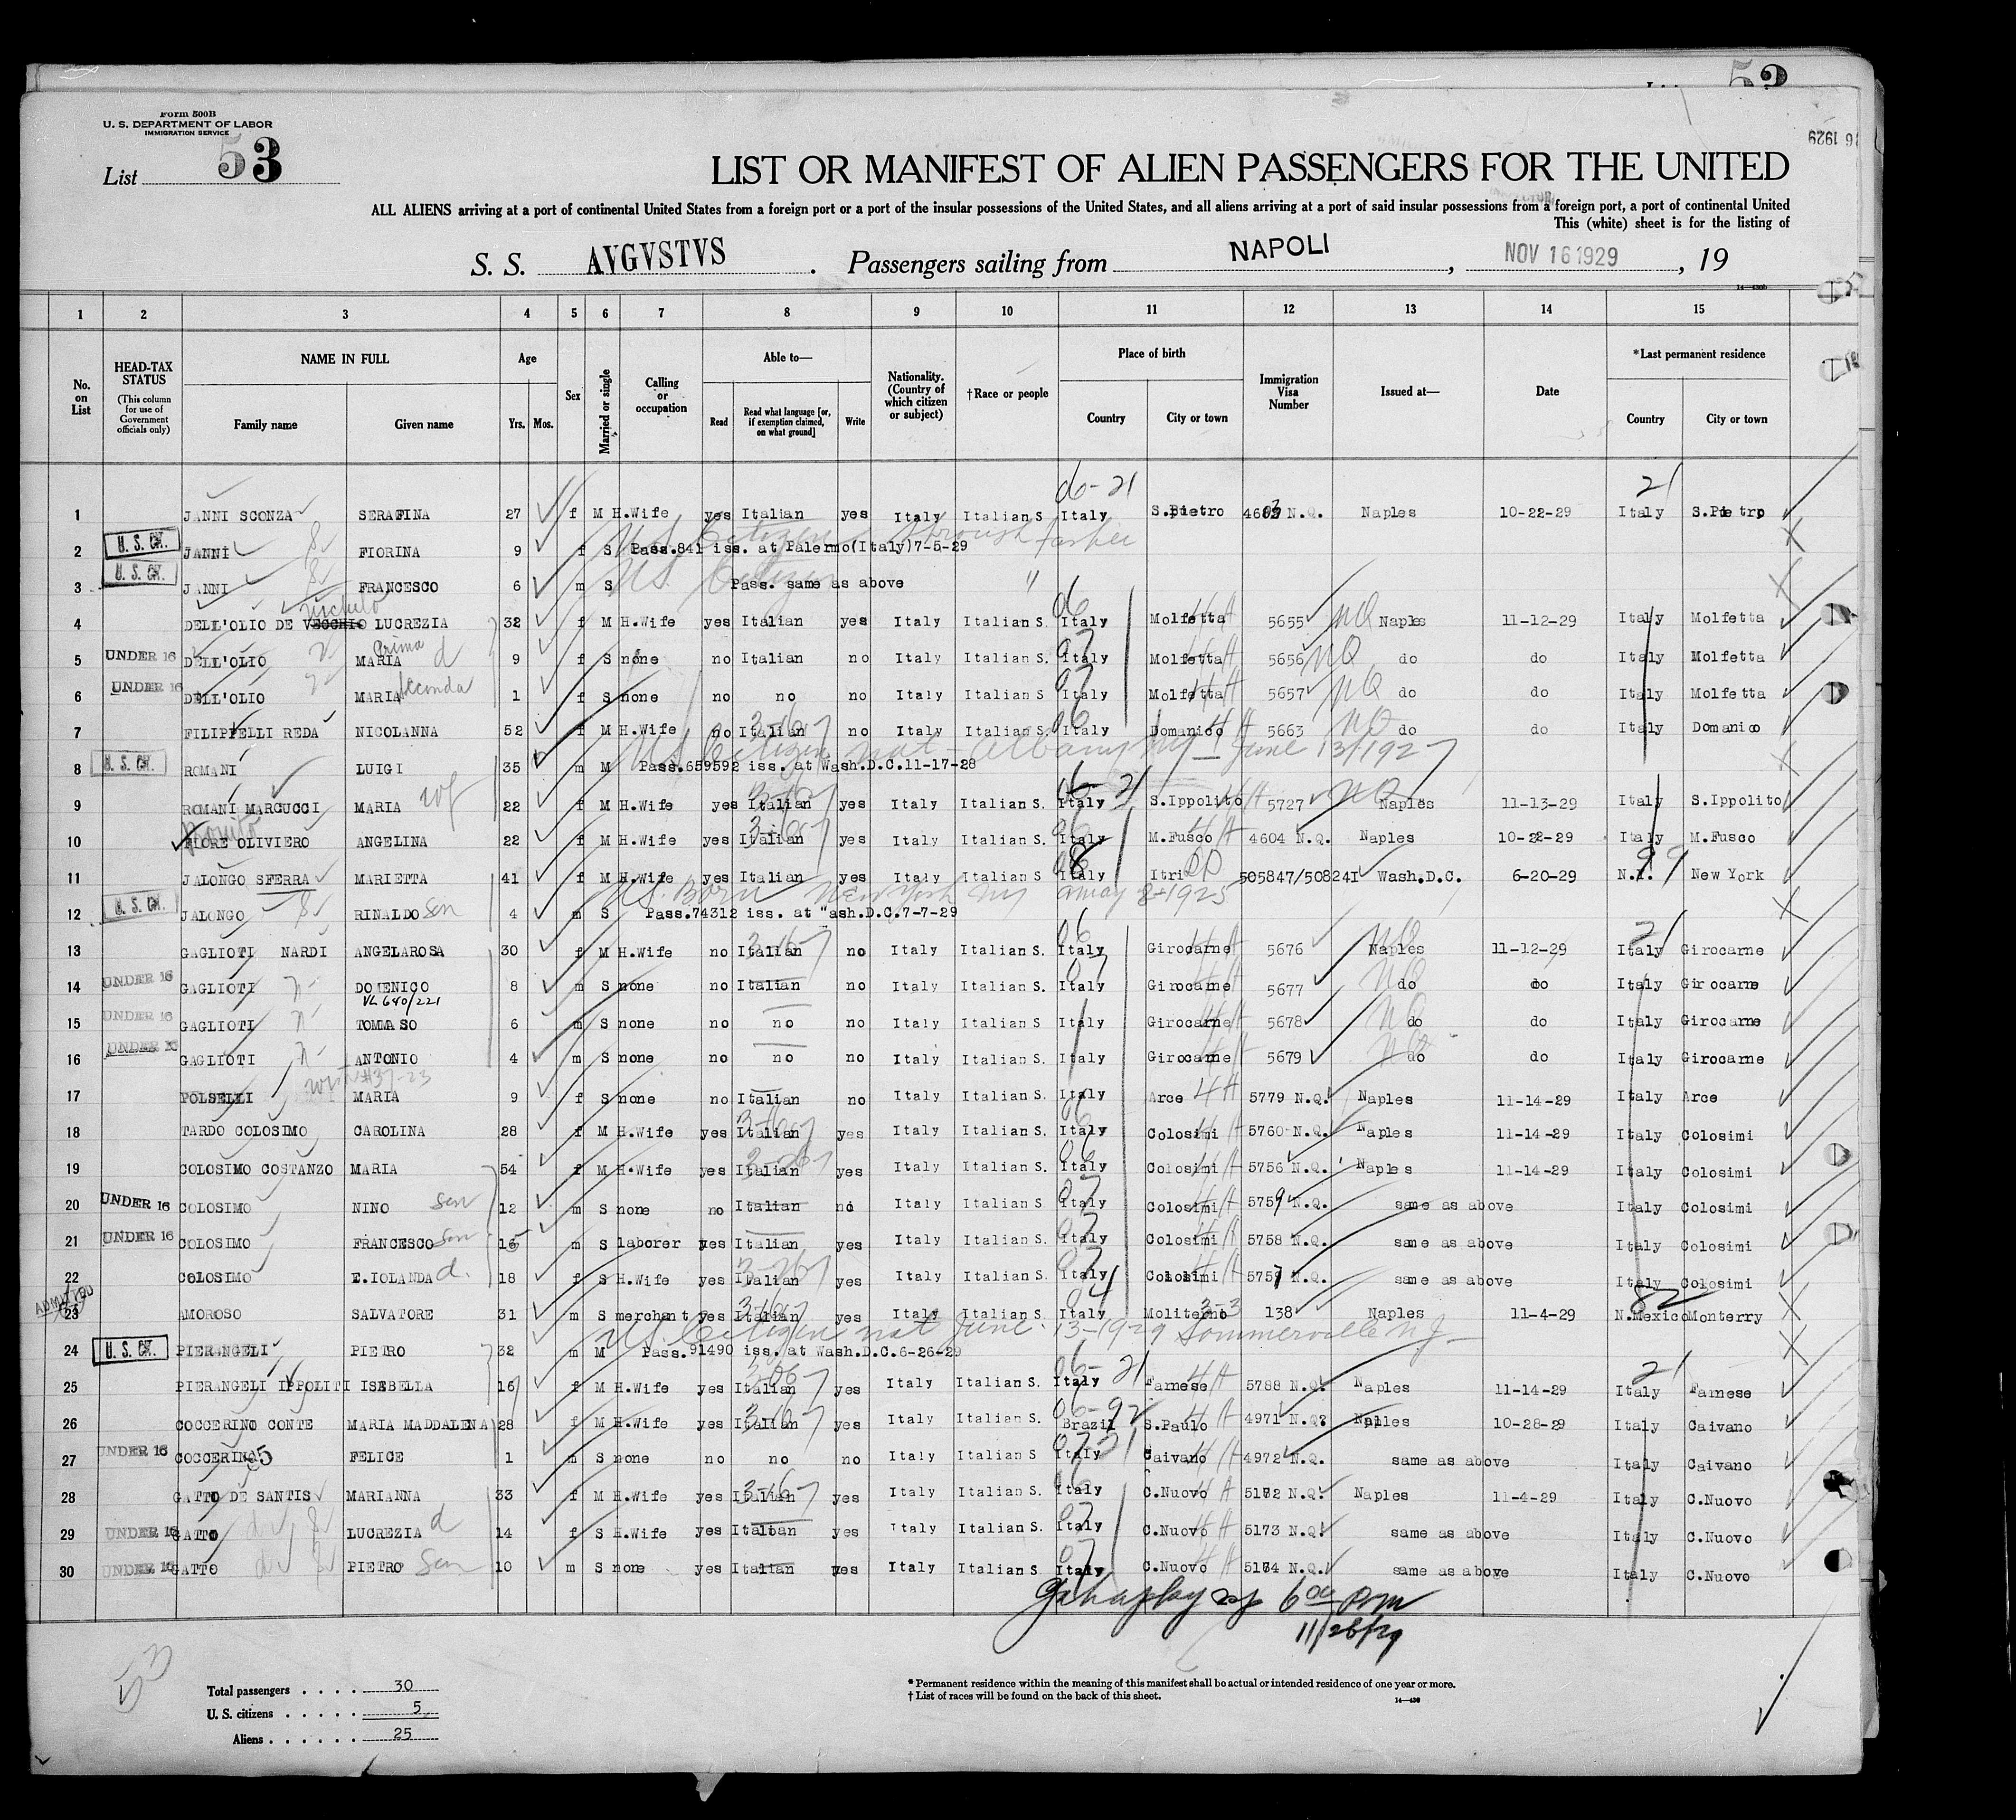 53
Form 500B
U. S. DEPARTMENT OF LABOR
IMMIGRATION SERVICE
List 53
16 1929
LIST OR MANIFEST OF ALIEN PASSENGERS FOR THE UNITED
ALL ALIENS arriving at a port of continental United States from a foreign port or a port of the insular possessions of the United States, and all aliens arriving at a port of said insular possessions from a foreign port, a port of continental United
This (white) sheet is for the listing of
S. S. AVGVSTVS . Passengers sailing from NAPOLI , NOV 16 1929 , 19
14—430b
1 2 3 4 5 6 7 8 9 10 11 12 13 14 15
No. on List
HEAD-TAX STATUS (This column for use of Government officials only)
NAME IN FULL
Family name Given name
Age
Yrs. Mos.
Sex
Married or single
Calling or occupation
Able to—
Read
Read what language [or, if exemption claimed, on what ground]
Write
Nationality. (Country of which citizen or subject)
†Race or people
Place of birth
Country City or town
Immigration Visa Number
Issued at—
Date
*Last permanent residence
Country City or town
06-21 21
1 JANNI SCONZA SERAFINA 27 f M H.Wife yes Italian yes Italy Italian S Italy S.Pietro N.Q. Naples 10-22-29 Italy S.Pietro
US Citizen through father
2 U. S. CIT. JANNI FIORINA 9 f S Pass.841 iss. at Palermo(Italy)7-5-29
US Citizen "
3 U. S. CIT. JANNI FRANCESCO 6 m S Pass. same as above
4 DELL'OLIO DE VECCHIO LUCREZIA 32 f M H.Wife yes Italian yes Italy Italian S. Italy Molfetta 5655 NQ Naples 11-12-29 Italy Molfetta
Prima
5 UNDER 16 DELL'OLIO MARIA d 9 f S none no Italian no Italy Italian S. Italy Molfetta 5656 NQ do do Italy Molfetta
6 UNDER 16 DELL'OLIO MARIA Seconda 1 f S none no no no Italy Italian S. Italy Molfetta 5657 NQ do do Italy Molfetta
7 FILIPPELLI REDA NICOLANNA 52 f M H.Wife no Italian no Italy Italian S. Italy Domanico 5663 NQ do do Italy Domanico
US Citizen nat - Albany NY - June 13/1927
8 U. S. CIT. ROMANI LUIGI 35 m M Pass.659592 iss. at Wash.D.C.11-17-28
9 ROMANI MARCUCCI MARIA wf 22 f M H.Wife yes Italian yes Italy Italian S. Italy S.Ippolito 5727 NQ Naples 11-13-29 Italy S.Ippolito
10 FIORE OLIVIERO ANGELINA 22 f M H.Wife yes Italian yes Italy Italian S. Italy M.Fusco 4604 N.Q. Naples 10-22-29 Italy M.Fusco
11 JALONGO SFERRA MARIETTA 41 f M H.Wife yes Italian yes Italy Italian S. Italy Itri 505847/508241 Wash.D.C. 6-20-29 N.Y. 99 New York
US. Born New York NY May 2-1925
12 U. S. CIT. JALONGO RINALDO son 4 m S Pass.74312 iss. at "ash.D.C.7-7-29
13 GAGLIOTI NARDI ANGELAROSA 30 f M H.Wife no Italian no Italy Italian S. Italy Girocarne 5676 NQ Naples 11-12-29 Italy Girocarne
14 UNDER 16 GAGLIOTI DOMENICO 8 m S none no Italian no Italy Italian S. Italy Girocarne 5677 NQ do do Italy Girocarne
VL 640/221
15 UNDER 16 GAGLIOTI TOMMASO 6 m S none no no no Italy Italian S Italy Girocarne 5678 NQ do do Italy Girocarne
16 UNDER 16 GAGLIOTI ANTONIO 4 m S none no no no Italy Italian S. Italy Girocarne 5679 NQ do do Italy Girocarne
17 POLSELLI MARIA 9 f S none no Italian no Italy Italian S. Italy Arce 5779 N.Q. Naples 11-14-29 Italy Arce
18 TARDO COLOSIMO CAROLINA 28 f M H.Wife yes Italian yes Italy Italian S. Italy Colosimi 5760 N.Q. Naples 11-14-29 Italy Colosimi
19 COLOSIMO COSTANZO MARIA 54 f M H.Wife yes Italian yes Italy Italian S. Italy Colosimi 5756 N.Q. Naples 11-14-29 Italy Colosimi
20 UNDER 16 COLOSIMO NINO son 12 m S none no Italian no Italy Italian S Italy Colosimi 5759 N.Q. same as above Italy Colosimi
21 UNDER 16 COLOSIMO FRANCESCO son 15 m S laborer yes Italian yes Italy Italian S. Italy Colosimi 5758 N.Q. same as above Italy Colosimi
22 COLOSIMO E.IOLANDA d. 18 f S H.Wife yes Italian yes Italy Italian S. Italy Colosimi 5757 N.Q. same as above Italy Colosimi
ADMITTED 82
23 AMOROSO SALVATORE 31 m S merchant yes Italian yes Italy Italian S. Italy Moliterno 138 Naples 11-4-29 N.Mexico Monterry
US. Citizen nat June 13-1929 Sommerville N.J.
24 U. S. CIT. PIERANGELI PIETRO 32 m M Pass.91490 iss. at Wash.D.C.6-26-29
06-21 21
25 PIERANGELI IPPOLITI ISABELLA 16 f M H.Wife yes Italian yes Italy Italian S. Italy Farnese 5788 N.Q. Naples 11-14-29 Italy Farnese
26 COCCERINO CONTE MARIA MADDALENA 28 f M H.Wife yes Italian yes Italy Italian S. Brazil S.Paulo 4971 N.Q. Naples 10-28-29 Italy Caivano
27 UNDER 16 COCCERINO FELICE 1 m S none no no no Italy Italian S Italy Caivano 4972 N.Q. same as above Italy Caivano
28 GATTO DE SANTIS MARIANNA 33 f M H.Wife yes Italian yes Italy Italian S. Italy C.Nuovo 5172 N.Q. Naples 11-4-29 Italy C.Nuovo
29 UNDER 16 GATTO LUCREZIA d 14 f S H.Wife yes Italian yes Italy Italian S. Italy C.Nuovo 5173 N.Q. same as above Italy C.Nuovo
30 UNDER 16 GATTO PIETRO Son 10 m S none yes Italian yes Italy Italian S. Italy C.Nuovo 5174 N.Q. same as above Italy C.Nuovo
6 00 PM
11/26/29
53
Total passengers . . . . 30
U. S. citizens . . . . . 5
Aliens . . . . . . 25
* Permanent residence within the meaning of this manifest shall be actual or intended residence of one year or more.
† List of races will be found on the back of this sheet.
14—430